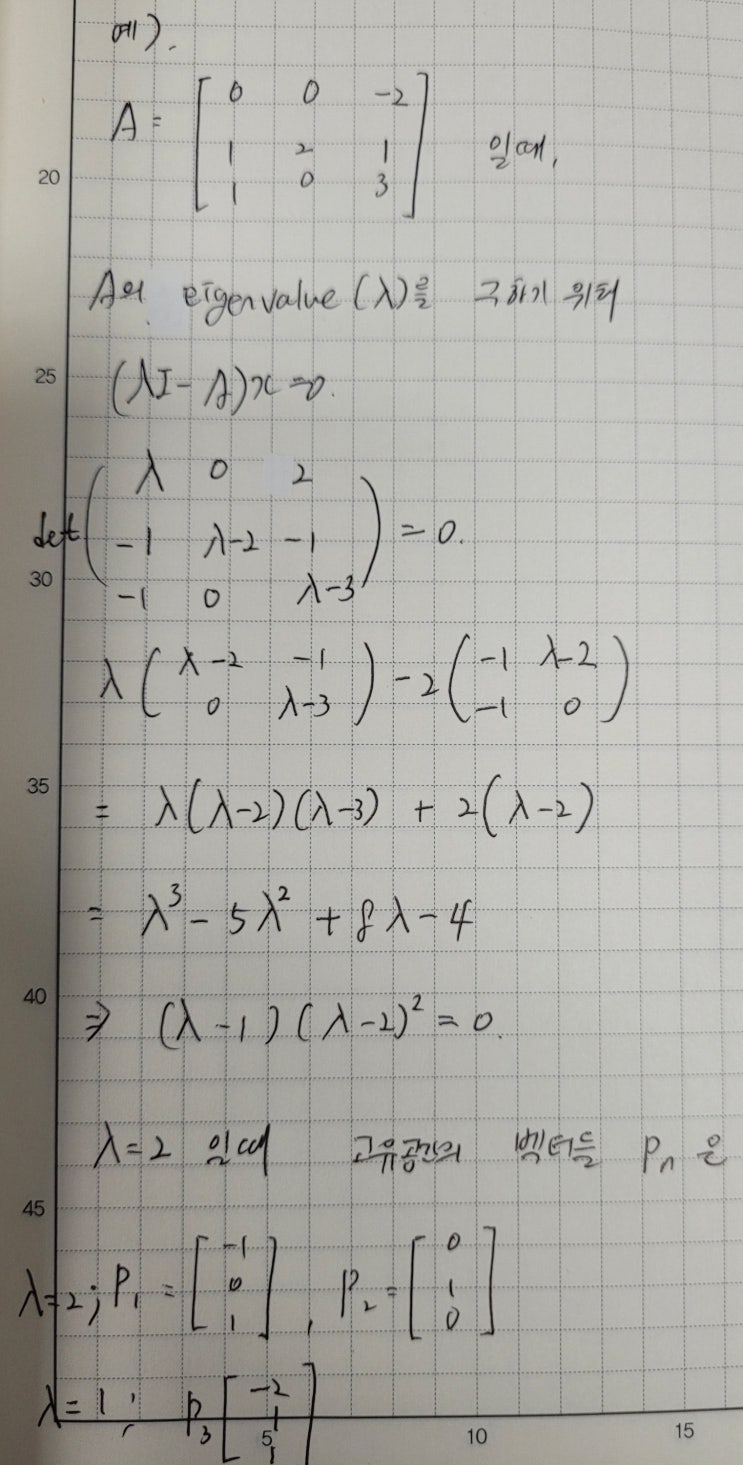 예).
A = [ 0 0 -2
1 2 1
1 0 3 ] 일때,
20
A의 eigenvalue (λ)를 구하기 위해
25
(λI - A)x = 0.
det ( λ 0 2
-1 λ-2 -1
-1 0 λ-3 ) = 0.
30
λ ( λ-2 -1
0 λ-3 ) -2 ( -1 λ-2
-1 0 )
35
= λ(λ-2)(λ-3) + 2(λ-2)
= λ³ - 5λ² + 8λ - 4
40
⇒ (λ-1)(λ-2)² = 0.
λ=2 일때 고유공간의 벡터들 Pₙ 은
45
λ=2; P₁ = [ -1
0
1 ], P₂ = [ 0
1
0 ]
λ=1; P₃ [ -2
1
1 ]
5 10 15